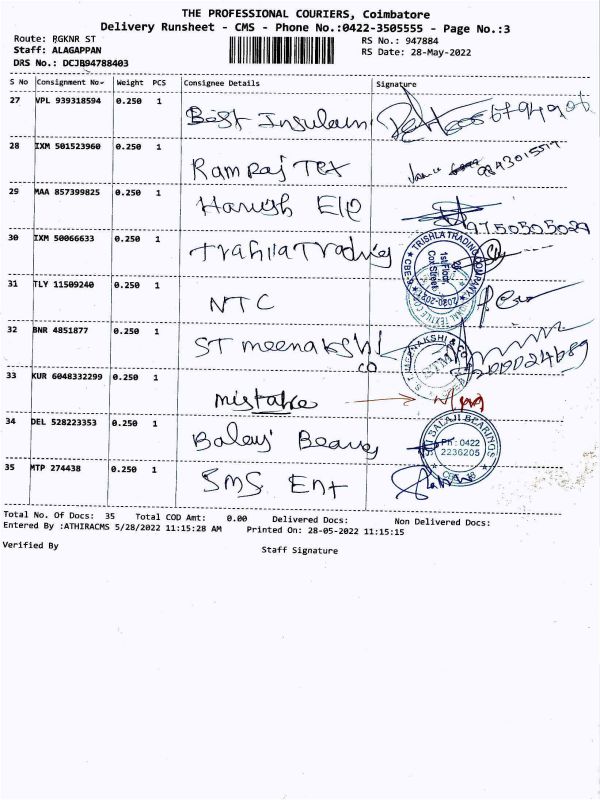 THE PROFESSIONAL COURIERS, Coimbatore
Delivery Runsheet - CMS - Phone No.:0422-3505555 - Page No.:3
Route: RGKNR ST
RS No.: 947884
Staff: ALAGAPPAN
RS Date: 28-May-2022
DRS No.: DCJB94788403
S No Consignment No- Weight PCS Consignee Details Signature
27 VPL 939318594 0.250 1
28 IXM 501523960 0.250 1 Ramraj Tex
29 MAA 857399825 0.250 1 Harish 9750505029
30 IXM 50066633 0.250 1 Trading
TRISHLA TRADING COMPANY
1st Floor,
Cox Street,
31 TLY 11509240 0.250 1 NTC
32 BNR 4851877 0.250 1 ST meenakshi
CO
MEENAKSHI & CO
33 KUR 6048332299 0.250 1 mistake
34 DEL 528223353 0.250 1 Balaji
SRI BALAJI BEARINGS
Ph : 0422
2236205
35 MTP 274438 0.250 1 SMS Ent
Total No. Of Docs: 35 Total COD Amt: 0.00 Delivered Docs: Non Delivered Docs:
Entered By :ATHIRACMS 5/28/2022 11:15:28 AM Printed On: 28-05-2022 11:15:15
Verified By
Staff Signature